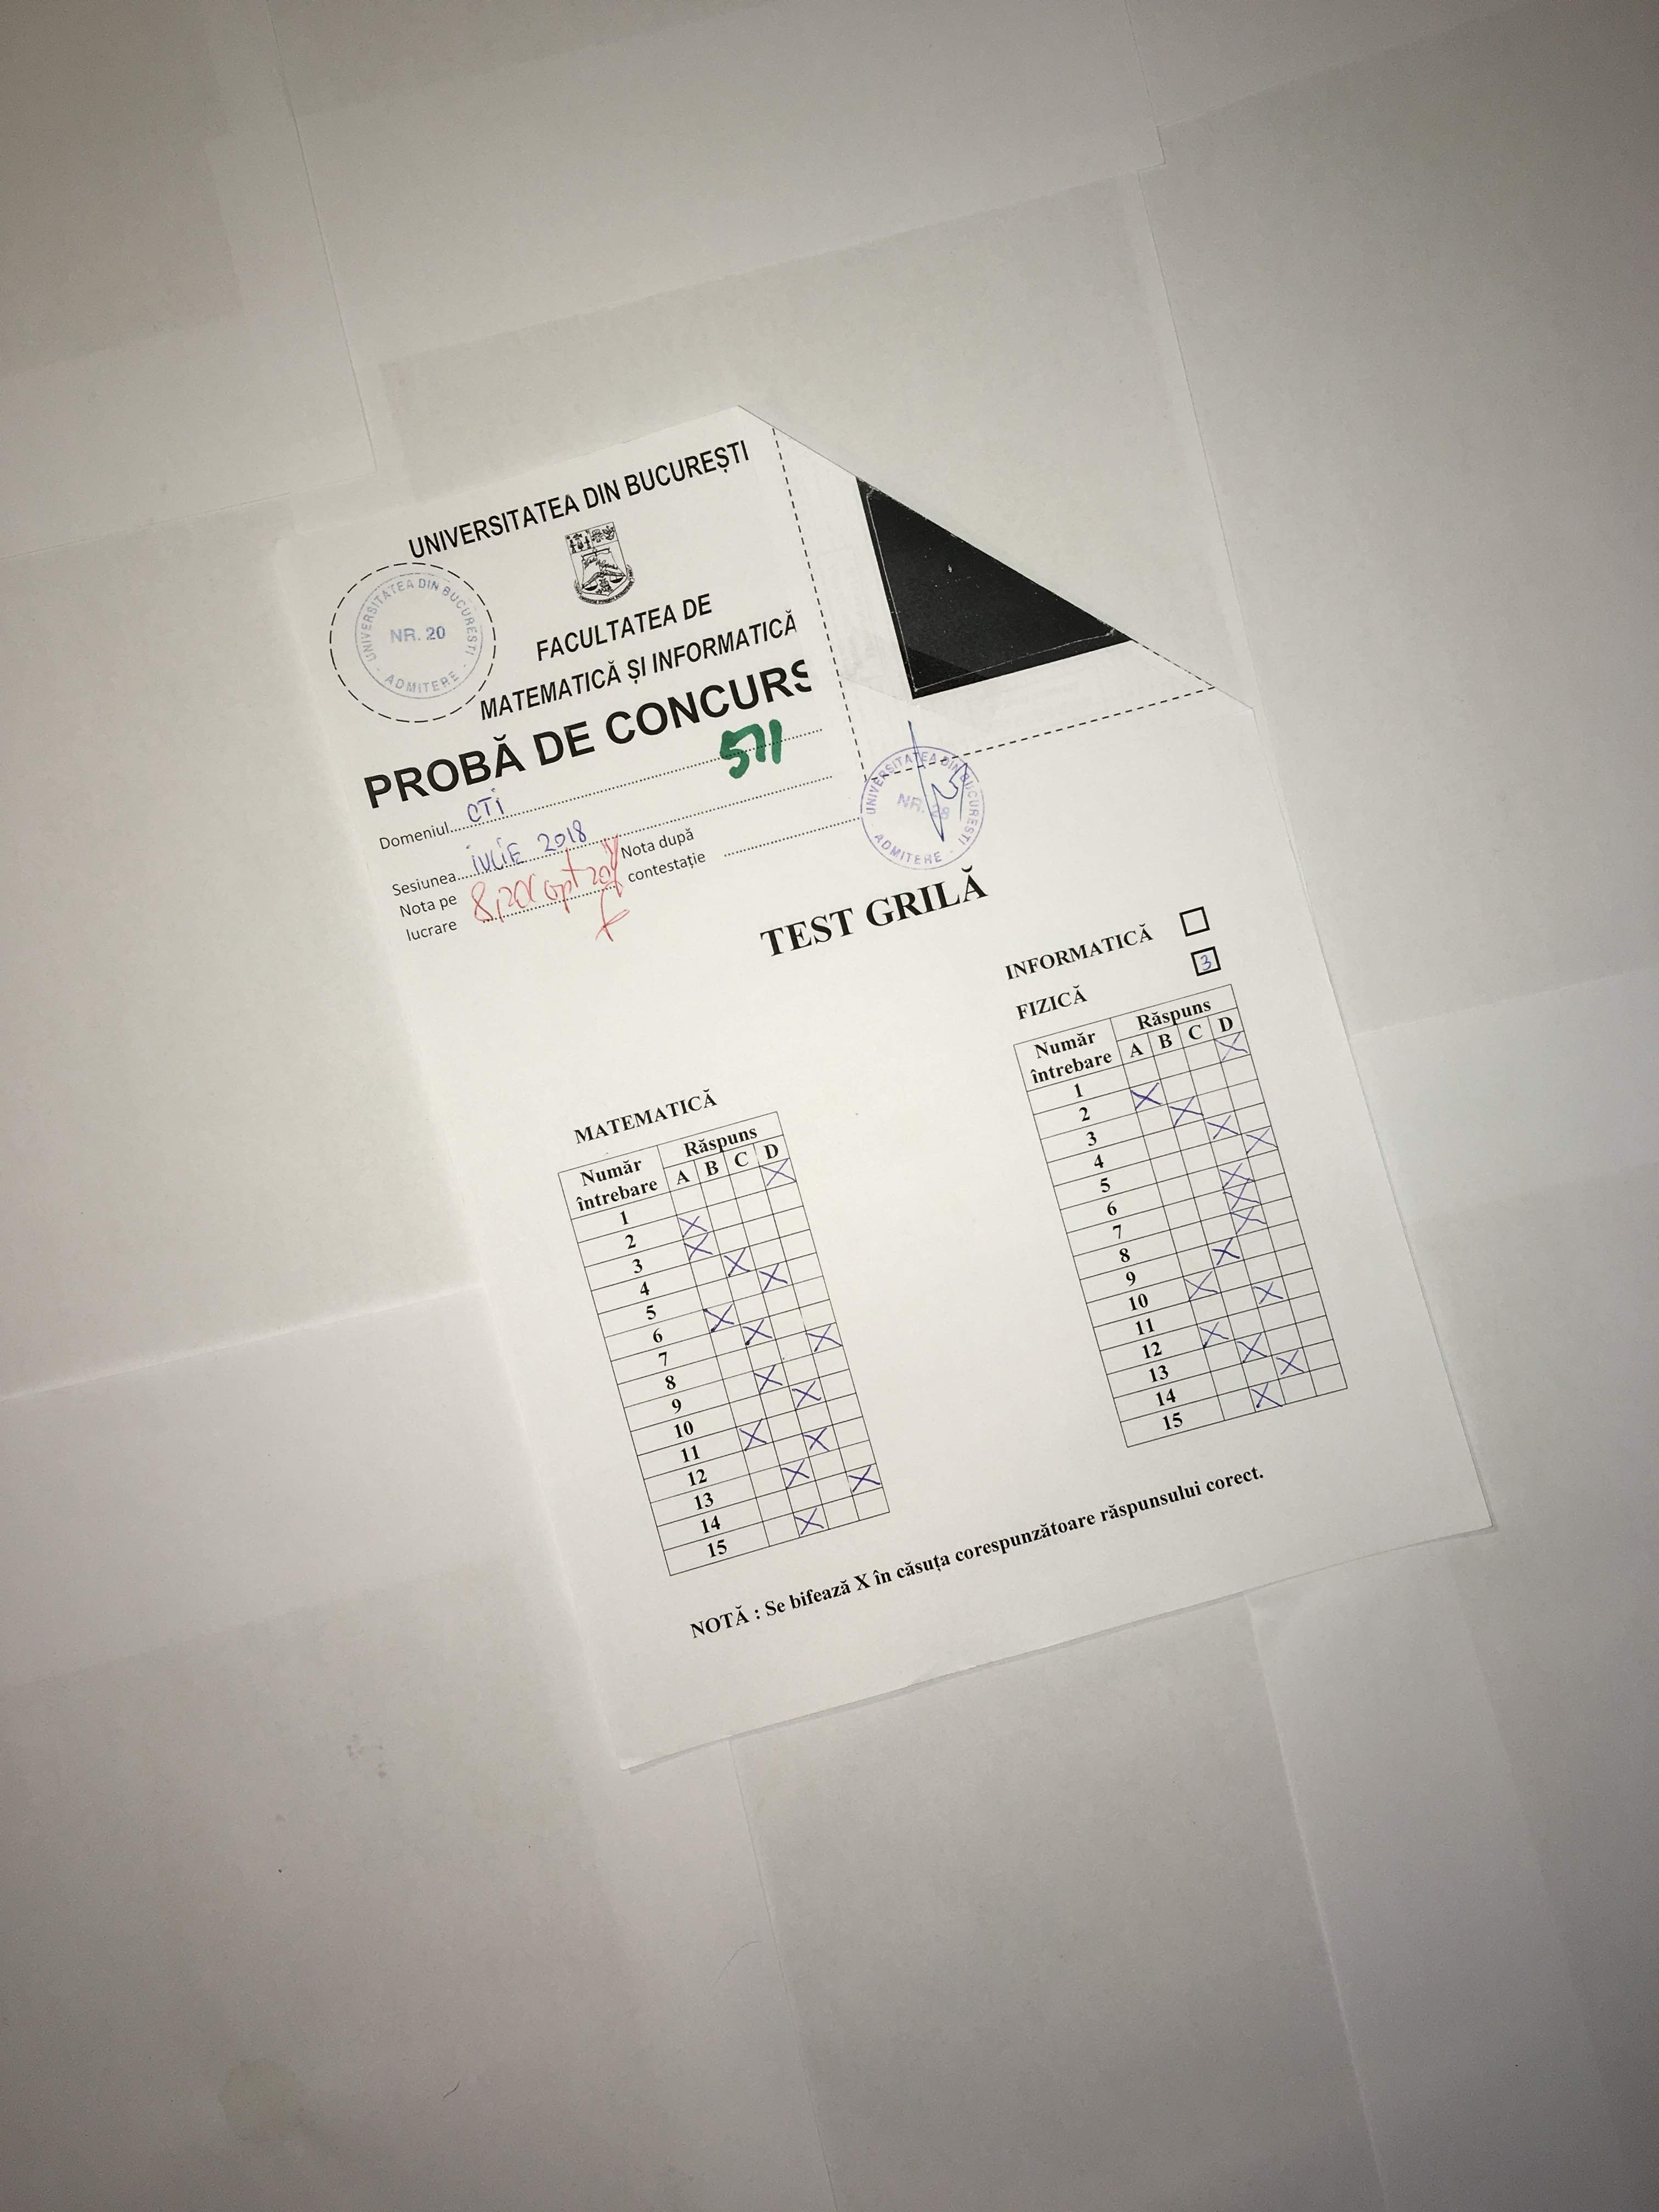 UNIVERSITATEA DIN BUCUREȘTI
UNIVERSITATEA DIN BUCUREȘTI
NR. 20
ADMITERE
FACULTATEA DE
MATEMATICĂ ȘI INFORMATICĂ
PROBĂ DE CONCURS
511
Domeniul CTI
Sesiunea IULIE 2018
Nota pe lucrare 8,20 (opt 20)
Nota după contestație
UNIVERSITATEA DIN BUCUREȘTI
NR. 28
ADMITERE
TEST GRILĂ
MATEMATICĂ
Număr întrebare Răspuns
A B C D
1 X
2 X
3 X
4 X
5 X
6 X
7 X
8 X
9 X
10 X
11 X
12 X
13 X
14 X
15 X
INFORMATICĂ
FIZICĂ 3
Număr întrebare Răspuns
A B C D
1 X
2 X
3 X
4 X
5 X
6 X
7 X
8 X
9 X
10 X
11 X
12 X
13 X
14 X
15 X
NOTĂ : Se bifează X în căsuța corespunzătoare răspunsului corect.